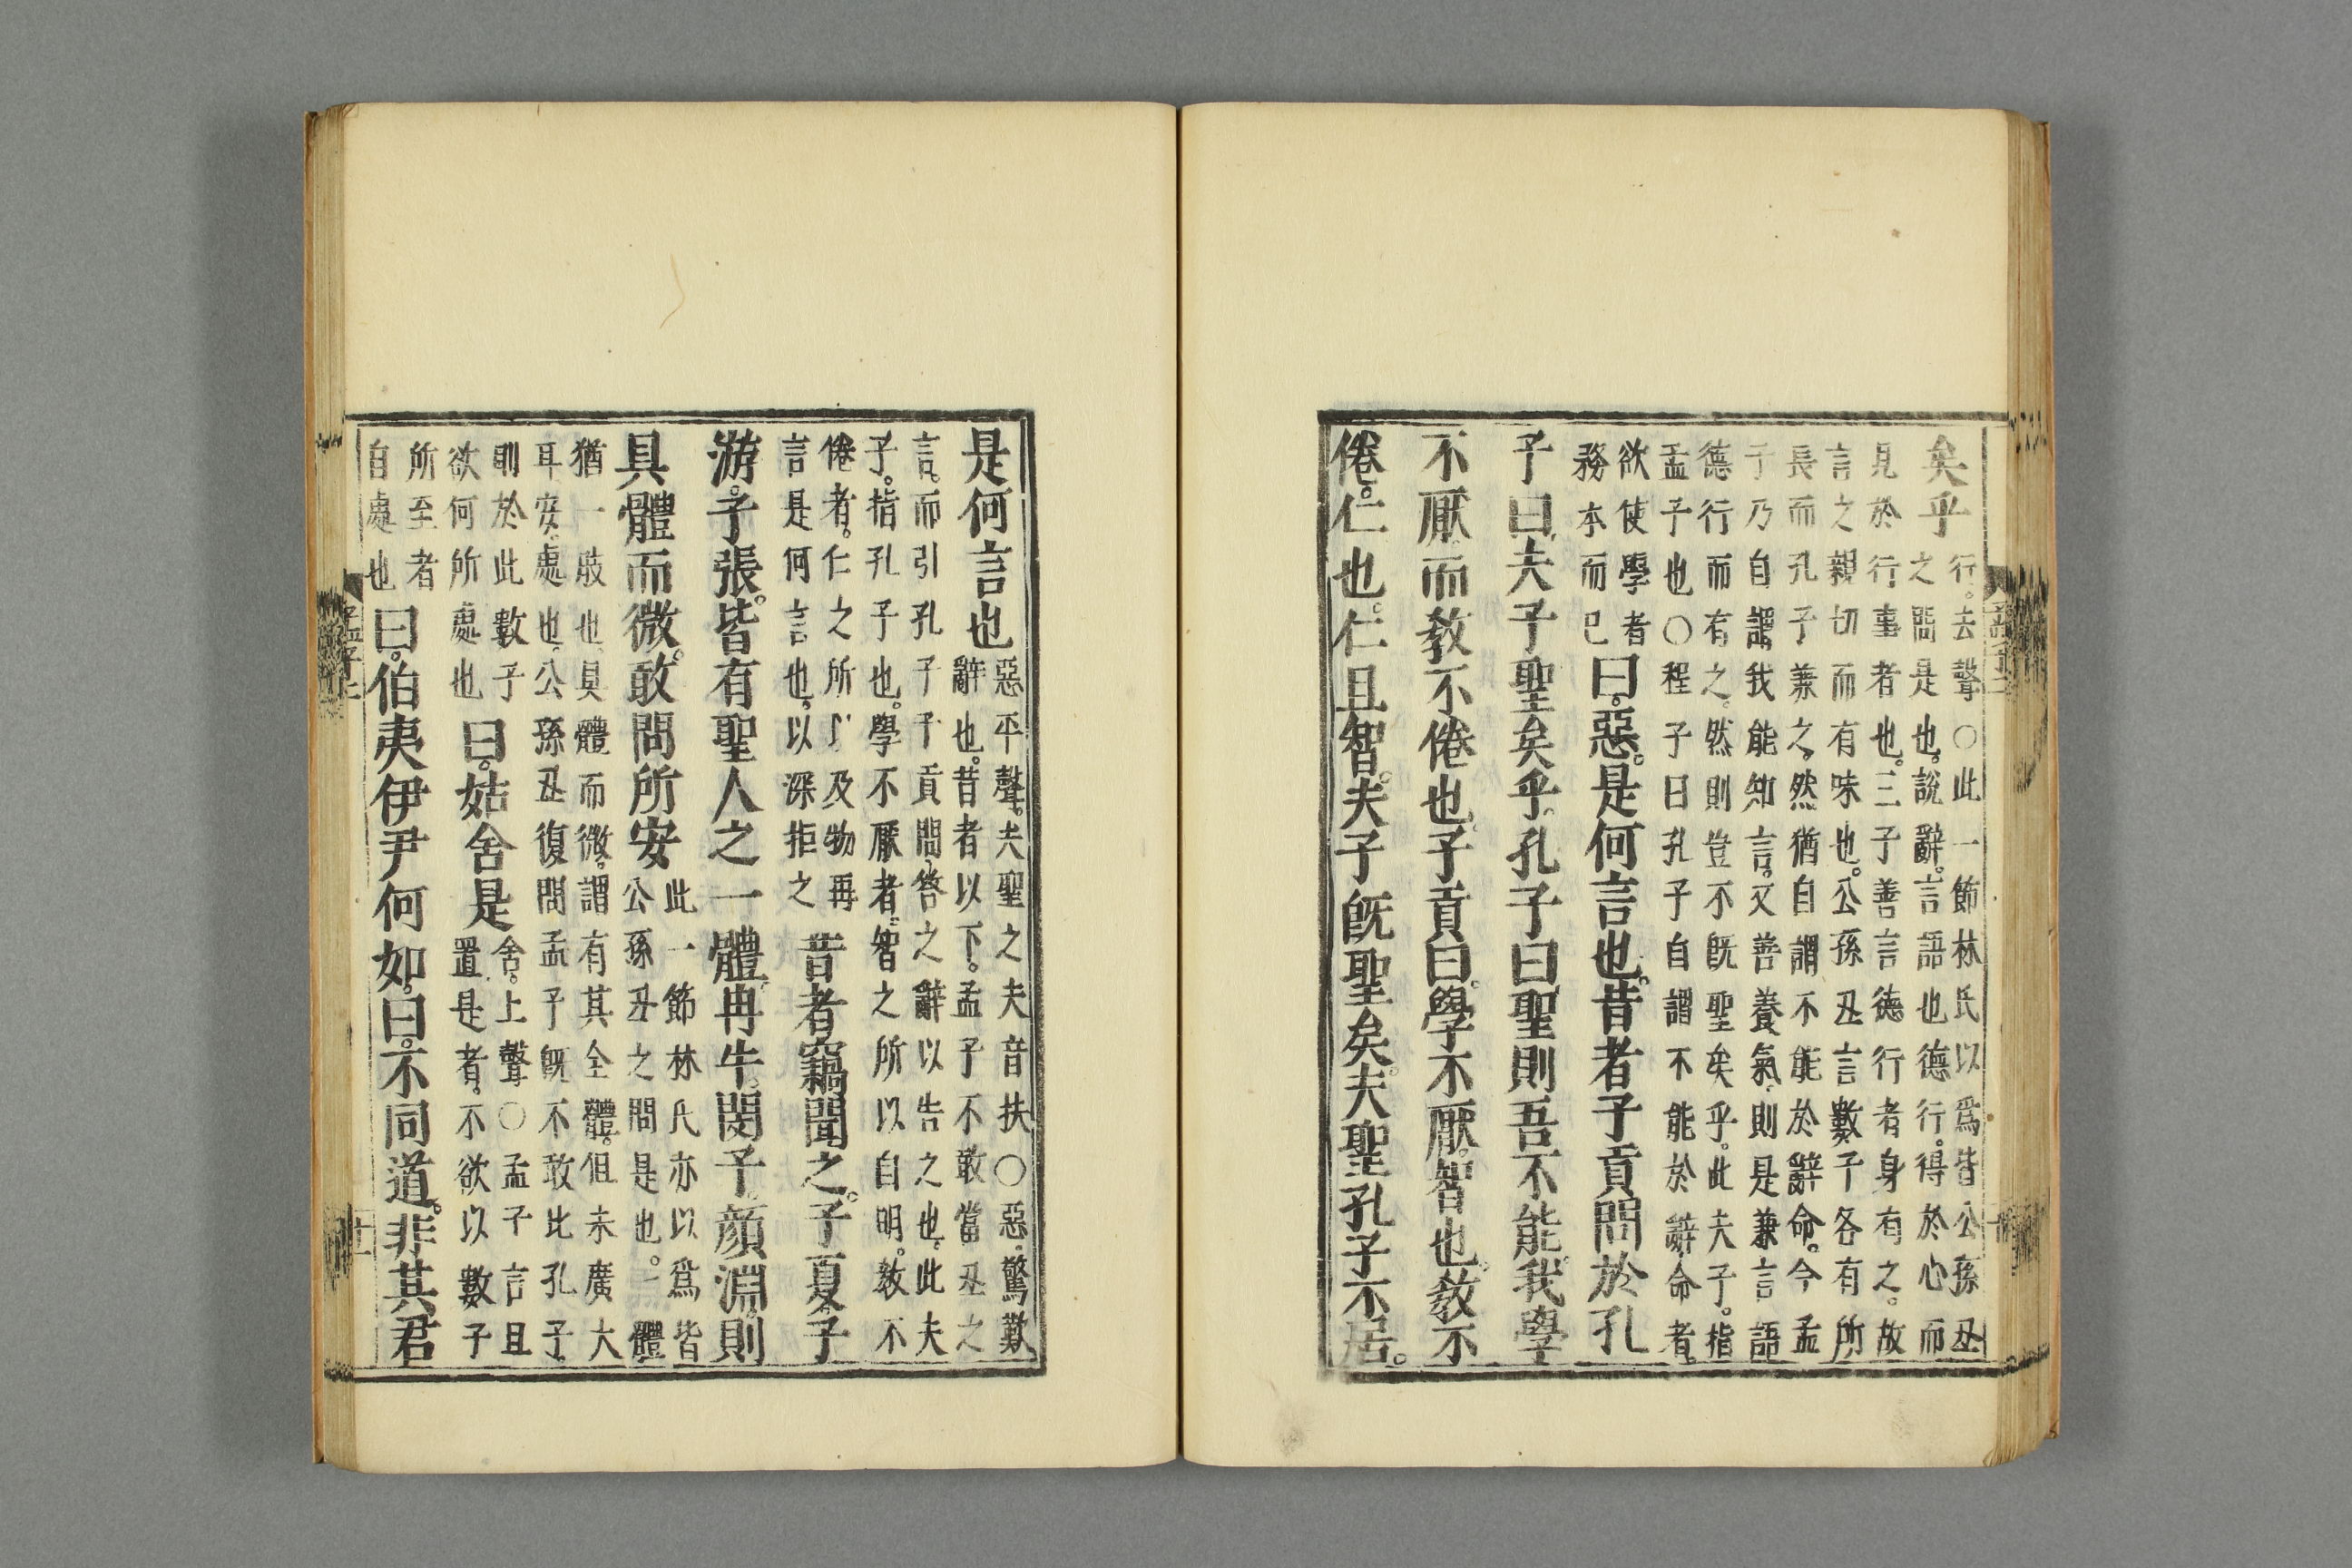 矣乎
行。去聲○此一節林氏以爲皆公孫丑
之問是也。說辭。言語也德行。得於心而
見於行事者也。三子善言德行者身有之。故
言之親切而有味也。公孫丑言數子各有所
長而孔子兼之。然猶自謂不能於辭命。今孟
子乃自謂我能知言。又善養氣。則是兼言語
德行而有之。然則豈不旣聖矣乎。此夫子。指
孟子也○程子曰孔子自謂不能於辭命者。
欲使學者
務本而已
曰。惡。是何言也。昔者子貢問於孔
子曰。夫子聖矣乎。孔子曰聖則吾不能。我學
不厭。而教不倦也。子貢曰。學不厭。智也。教不
倦。仁也。仁且智。夫子旣聖矣。夫聖孔子不居。
是何言也
惡平聲。夫聖之夫音扶○惡。驚歎
辭也。昔者以下。孟子不敢當丑之
言。而引孔子子貢問答之辭以告之也。此夫
子。指孔子也。學不厭者。智之所以自明。教不
倦者。仁之所以及物再
言是何言也。以深拒之
昔者竊聞之。子夏。子
游。子張。皆有聖人之一體。冉牛。閔子。顔淵。則
具體而微。敢問所安
此一節林氏亦以爲皆
公孫丑之問是也。一體
猶一肢也。具體而微。謂有其全體。但未廣大
耳安。處也。公孫丑復問孟子旣不敢比孔子。
則於此數子
欲何所處也
曰。姑舍是
舍。上聲○孟子言且
置是者。不欲以數子
所至者
自處也
曰。伯夷伊尹何如。曰。不同道。非其君
孟子二